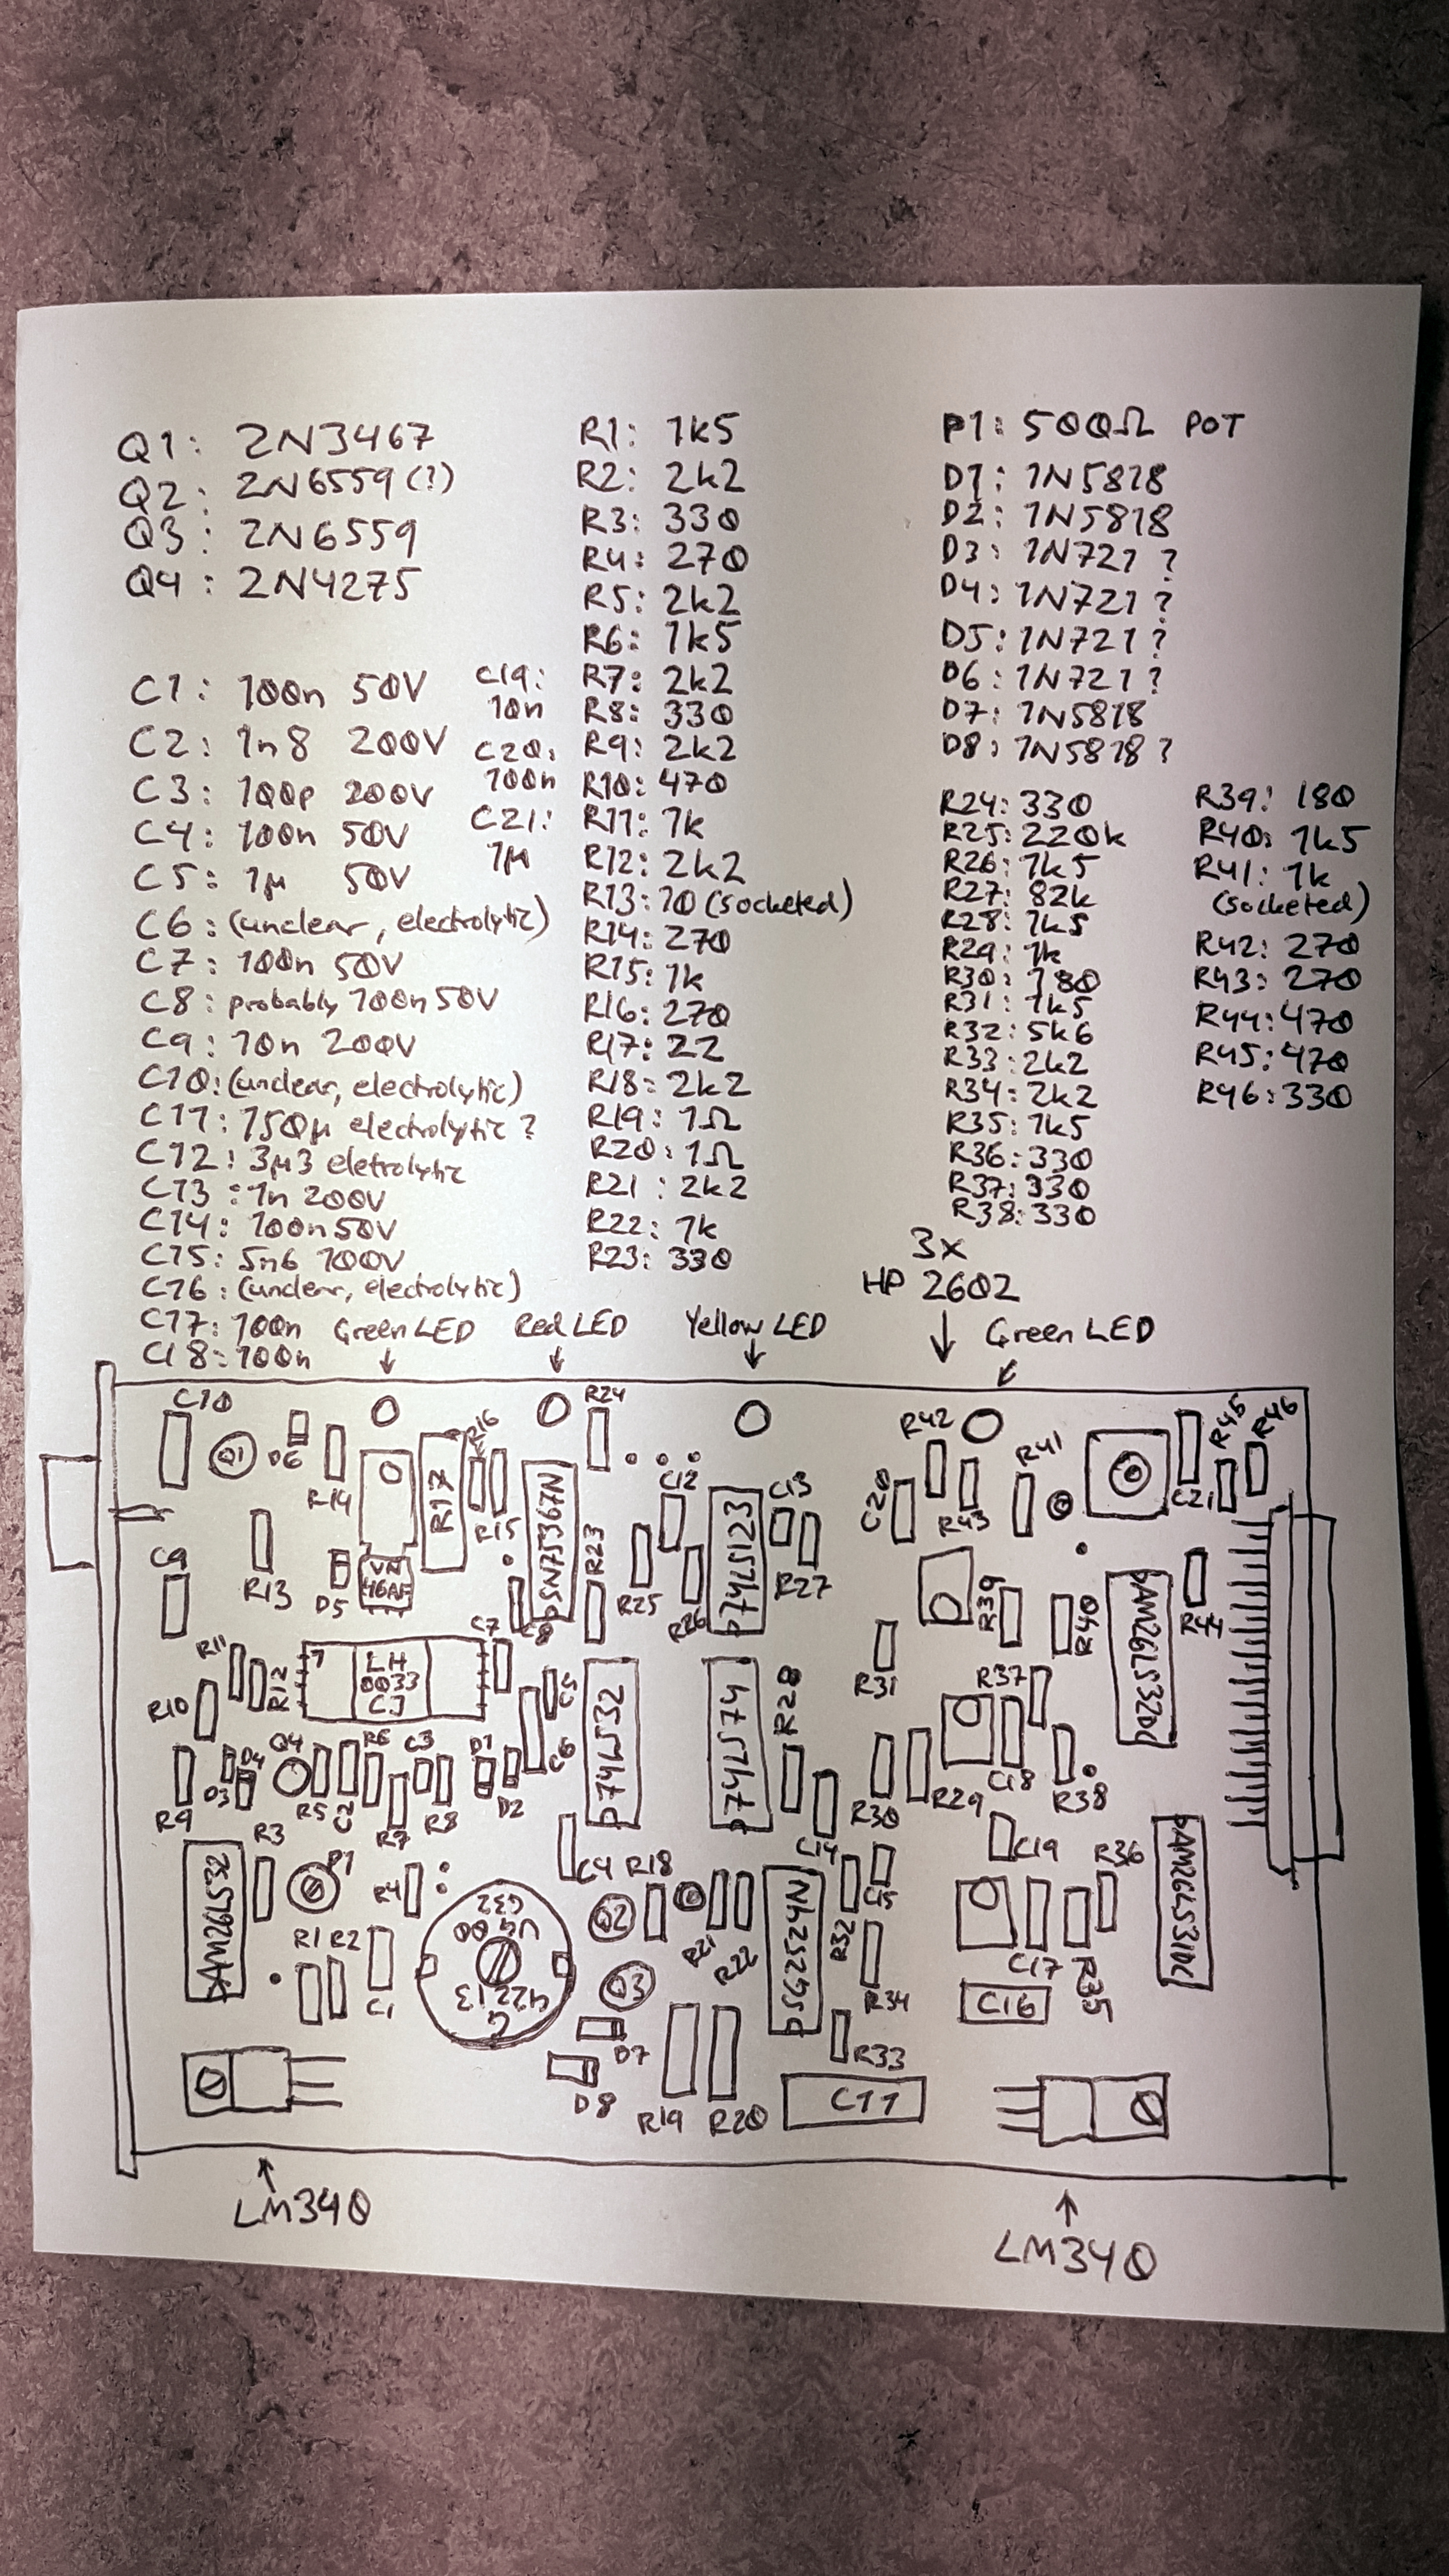 Q1: 2N3467
Q2: 2N6559(?)
Q3: 2N6559
Q4: 2N4275
C1: 100n 50V
C2: 1n8 200V
C3: 100p 200V
C4: 100n 50V
C5: 1µ 50V
C6: (unclear, electrolytic)
C7: 100n 50V
C8: probably 100n 50V
C9: 10n 200V
C10: (unclear, electrolytic)
C11: 150µ electrolytic ?
C12: 3µ3 eletrolytic
C13: 1n 200V
C14: 100n 50V
C15: 5n6 100V
C16: (unclear, electrolytic)
C17: 100n
C18: 100n
C19:
10n
C20:
100n
C21:
1µ
R1: 1k5
R2: 2k2
R3: 330
R4: 270
R5: 2k2
R6: 1k5
R7: 2k2
R8: 330
R9: 2k2
R10: 470
R11: 1k
R12: 2k2
R13: 10 (socketed)
R14: 270
R15: 1k
R16: 270
R17: 22
R18: 2k2
R19: 1Ω
R20: 1Ω
R21: 2k2
R22: 1k
R23: 330
P1: 500Ω POT
D1: 1N5818
D2: 1N5818
D3: 1N721 ?
D4: 1N721 ?
D5: 1N721 ?
D6: 1N721 ?
D7: 1N5818
D8: 1N5818 ?
R24: 330
R25: 220k
R26: 1k5
R27: 82k
R28: 1k5
R29: 1k
R30: 180
R31: 1k5
R32: 5k6
R33: 2k2
R34: 2k2
R35: 1k5
R36: 330
R37: 330
R38: 330
R39: 180
R40: 1k5
R41: 1k
(socketed)
R42: 270
R43: 270
R44: 470
R45: 470
R46: 330
3x
HP 2602
Green LED
Red LED
Yellow LED
Green LED
C10
Q1
D6
R14
R17
R16
R15
SN75367N
R24
C12
74LS123
C13
R42
R41
C20
R43
C21
R45
R46
C9
R13
D5
VN
46AF
C8
R23
R25
R26
R27
R39
R40
AM26LS32DC
R44
R11
R12
R10
LH
0033
CJ
C7
C5
C6
74LS32
74LS74
R28
R31
R37
R9
D3
D4
Q4
R5
C2
R6
R7
C3
R8
D1
D2
C14
R30
R29
C18
R38
R3
P1
R4
AM26LS32
R1
R2
C1
C4
R18
Q2
Q3
R21
R22
C15
R32
R34
R33
C19
R36
C17
R35
C16
AM26LS31DC
D7
D8
R19
R20
C11
LM340
LM340